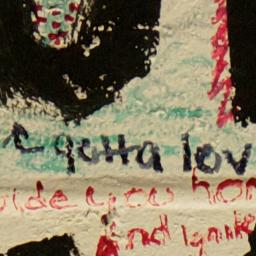 gotta lov
ide you hom
And ignite